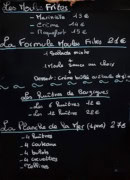 Les Moules Frites
- Marinière 13 €
- Crème 14 €
- Roquefort 15 €
La Formule Moules Frites 21 €
1 Salade mixte
1 Moule Sauce au choix
Dessert : Crème brûlée
Les Huîtres de Bouzigues
- Les 6 huîtres 12 €
- Les 12 huîtres 22 €
La Planche de la Mer (2 pers) 27 €
- 4 huîtres
- 4 couteaux
- 4 bulots
- 4 crevettes
- Tellines